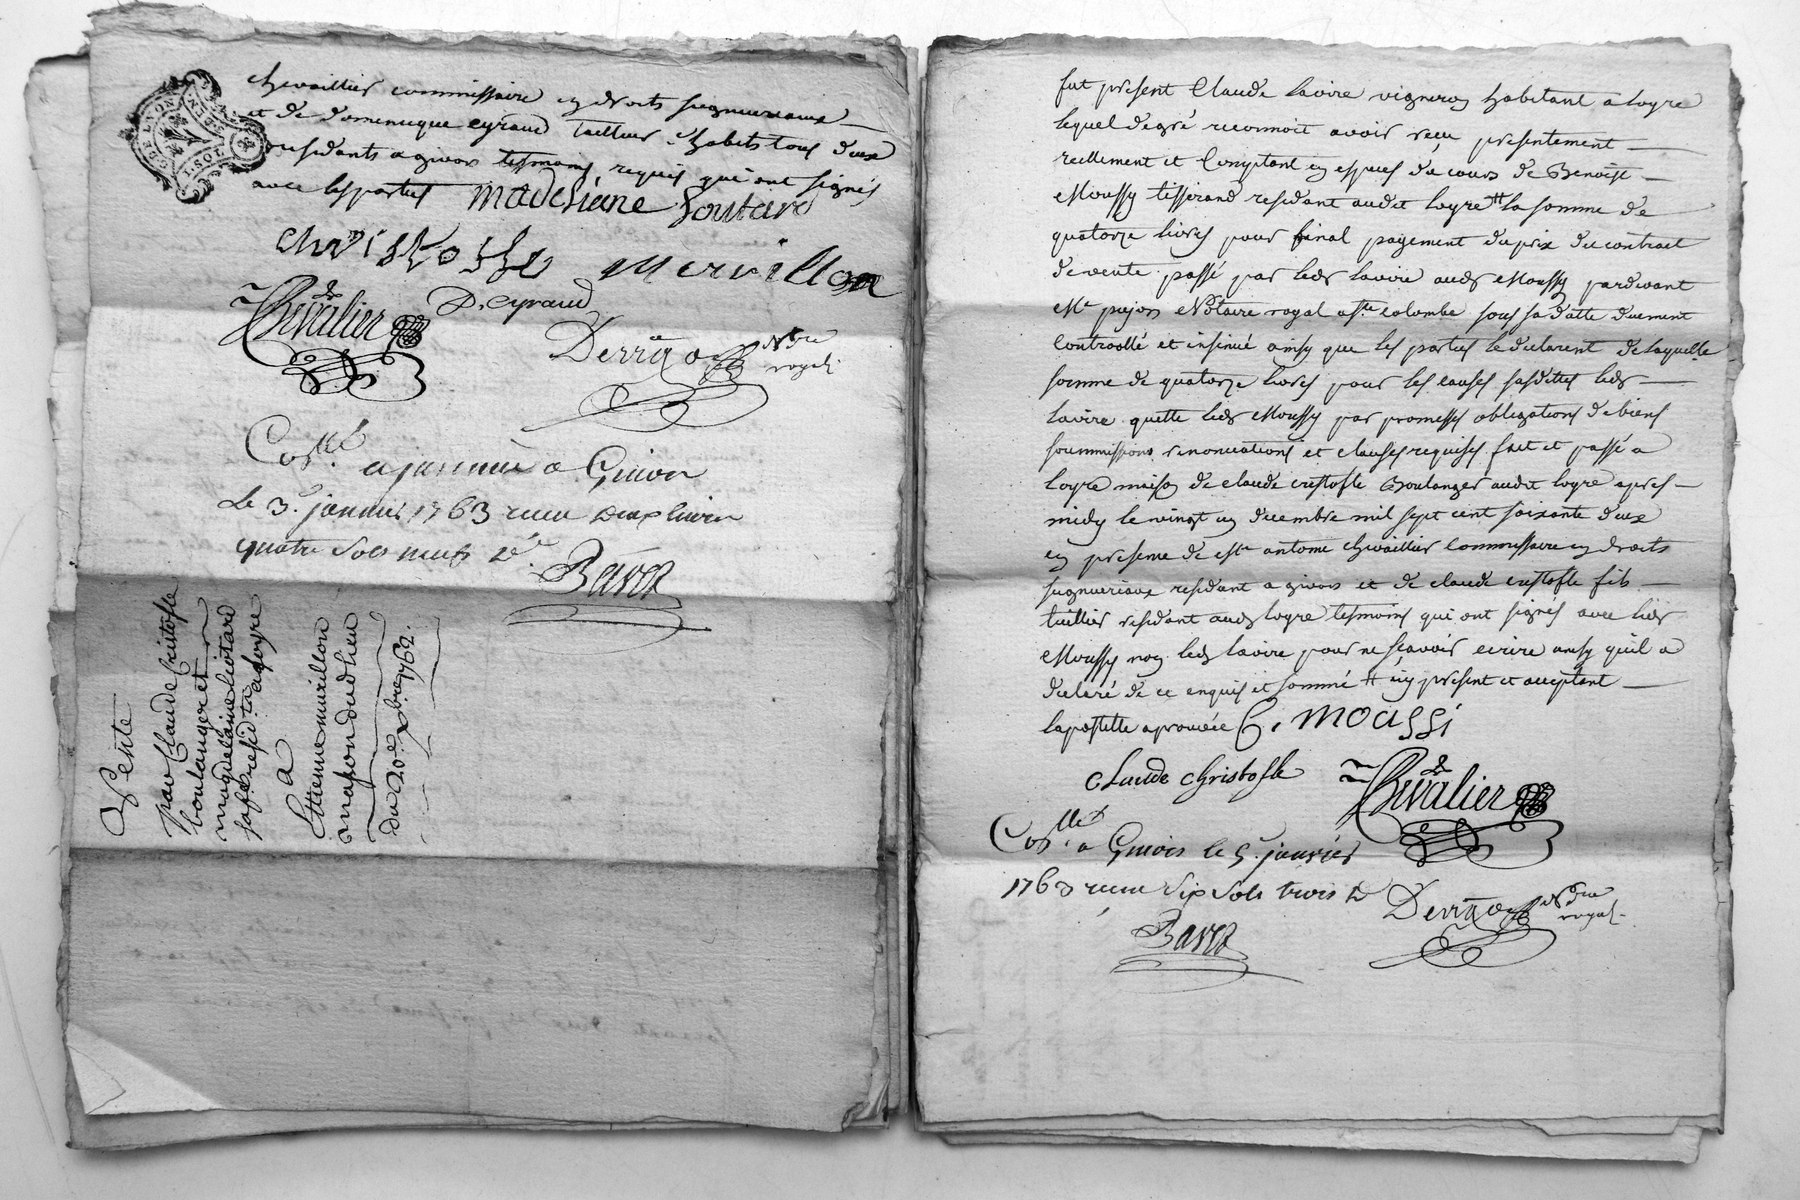 chevaillier commissaire en droits seigneuriaux
et de domenicque eyraud tailleur d'habits tous deux
residants a givors tesmoins requis qui ont signés
avec les parties madeslene Loutard
christofle mervillon
Chevalier D. eyraud
Not.re
royal
Con.llé a Givors
Le 3.e janvier 1763 receu deux livres
quatre sols neuf d.
Baron
Vente
par Claude Cristofle
boulanger et
magdelaine liotard
sa fe. resid.ts a loyre
a
Ettienne mirillon
maçon dudit lieu
du 20.e xbre 1762.
fut présent Claude Lavire vigneron habitant a loyre
lequel de gré reconnoit avoir reçu présentement
reellement et comptant en especes du cours de Benoist
Moussy tisserand residant audit loyre # la somme de
quatorze livres pour final payement du prix du contract
de vente passé par ledt Lavire audt Moussy pardevant
Me pujon Notaire royal a Ste colombe sous sa datte duement
controollé et insinué ainsy que les parties le declarent de laquelle
somme de quatorze livres pour les causes susdittes ledt
Lavire quitte ledt Moussy par promesses obligations de biens
soummissions renonciations et clauses requises fait et passé a
loyre maison de claude cristofle Boulanger audit loyre apres
midy le vingt un decembre mil sept cent soixante deux
en presence de Me antoine chevaillier commissaire en droits
seigneuriaux residant a givors et de claude cristofle fils
taillier residant audt loyre tesmoins qui ont signés avec ledt
Moussy non ledt Lavire pour ne sçavoir ecrire ainsy qu'il a
déclaré de ce enquis et sommé # icy present et acceptant
la postille aprouvée B. moussi
claude christofle Chevalier
Con.llé a Givors le 5.e janvier
1763 receu six sols trois d Not.re
royal.
Baron